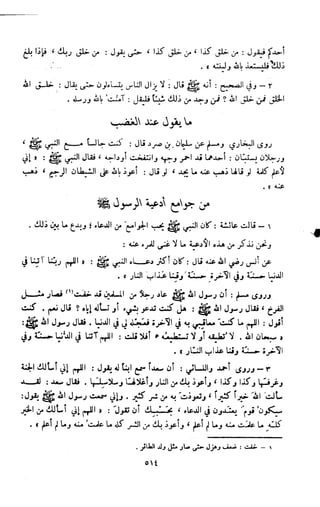 أحدكم فيقول : من خلق كذا ، من خلق كذا ، حتى يقول : من خلق ربك ، فإذا بلغ
ذلك فليستعذ بالله ولينته » .
٢ – وفي الصحيح : أنه ﷺ قال : لا يزال الناس يتساءلون حتى يقال : خلق الله
الخلق فمن خلق الله ؟ فمن وجد من ذلك شيئاً فليقل : آمنت بالله ورسله .
ما يقول عند الغضب
روى البخاري ومسلم عن سليمان بن صرد قال : كنت جالساً مع النبي ﷺ ،
ورجلان يستبان : أحدهما قد احمر وجهه وانتفخت أوداجه ، فقال النبي ﷺ : « إني
لأعلم كلمة لو قالها ذهب عنه ما يجد ، لو قال : أعوذ بالله من الشيطان الرجيم ، ذهب
عنه » .
من جوامع أدعية الرسول ﷺ
١ – قالت عائشة : كان النبي ﷺ يحب الجوامع من الدعاء ؛ ويدع ما بين ذلك .
ونحن نذكر من هذه الأدعية ما لا غنى للمرء عنه :
عن أنس رضي الله عنه قال : كان أكثر دعاء النبي ﷺ : « اللهم ربنا آتنا في
الدنيا حسنة وفي الآخرة حسنة وقنا عذاب النار » .
وروى مسلم : أن رسول الله ﷺ عاد رجلاً من المسلمين قد خفت(١) فصار مثل
الفرخ ، فقال رسول الله ﷺ : هل كنت تدعو بشيء ، أو تسأله إياه ؟ قال نعم . كنت
أقول : اللهم ما كنت معاقبي به في الآخرة فعجله لي في الدنيا . فقال رسول الله ﷺ :
« سبحان الله . لا تطيقه أو لا تستطيعه » أفلا قلت : « اللهم آتنا في الدنيا حسنة وفي
الآخرة حسنة وقنا عذاب النار » .
٣ – وروى أحمد والنسائي : أن سعداً سمع ابناً له يقول : اللهم إني أسألك الجنة
وغرفها وكذا وكذا ، وأعوذ بك من النار وأغلالها وسلاسلها . فقال سعد : لقد
سألت الله خيراً كثيراً ، وتعوذت به من شر كثير . وإني سمعت رسول الله ﷺ يقول :
سيكون قوم يعتدون في الدعاء ، بحسبك أن تقول : « اللهم إني أسألك من الخير
كله ما علمت منه وما لم أعلم ، وأعوذ بك من الشر كله ما علمت منه وما لم أعلم » .
١ – خفت : ضعف وهزل حتى صار مثل ولد الطائر .
٥١٤